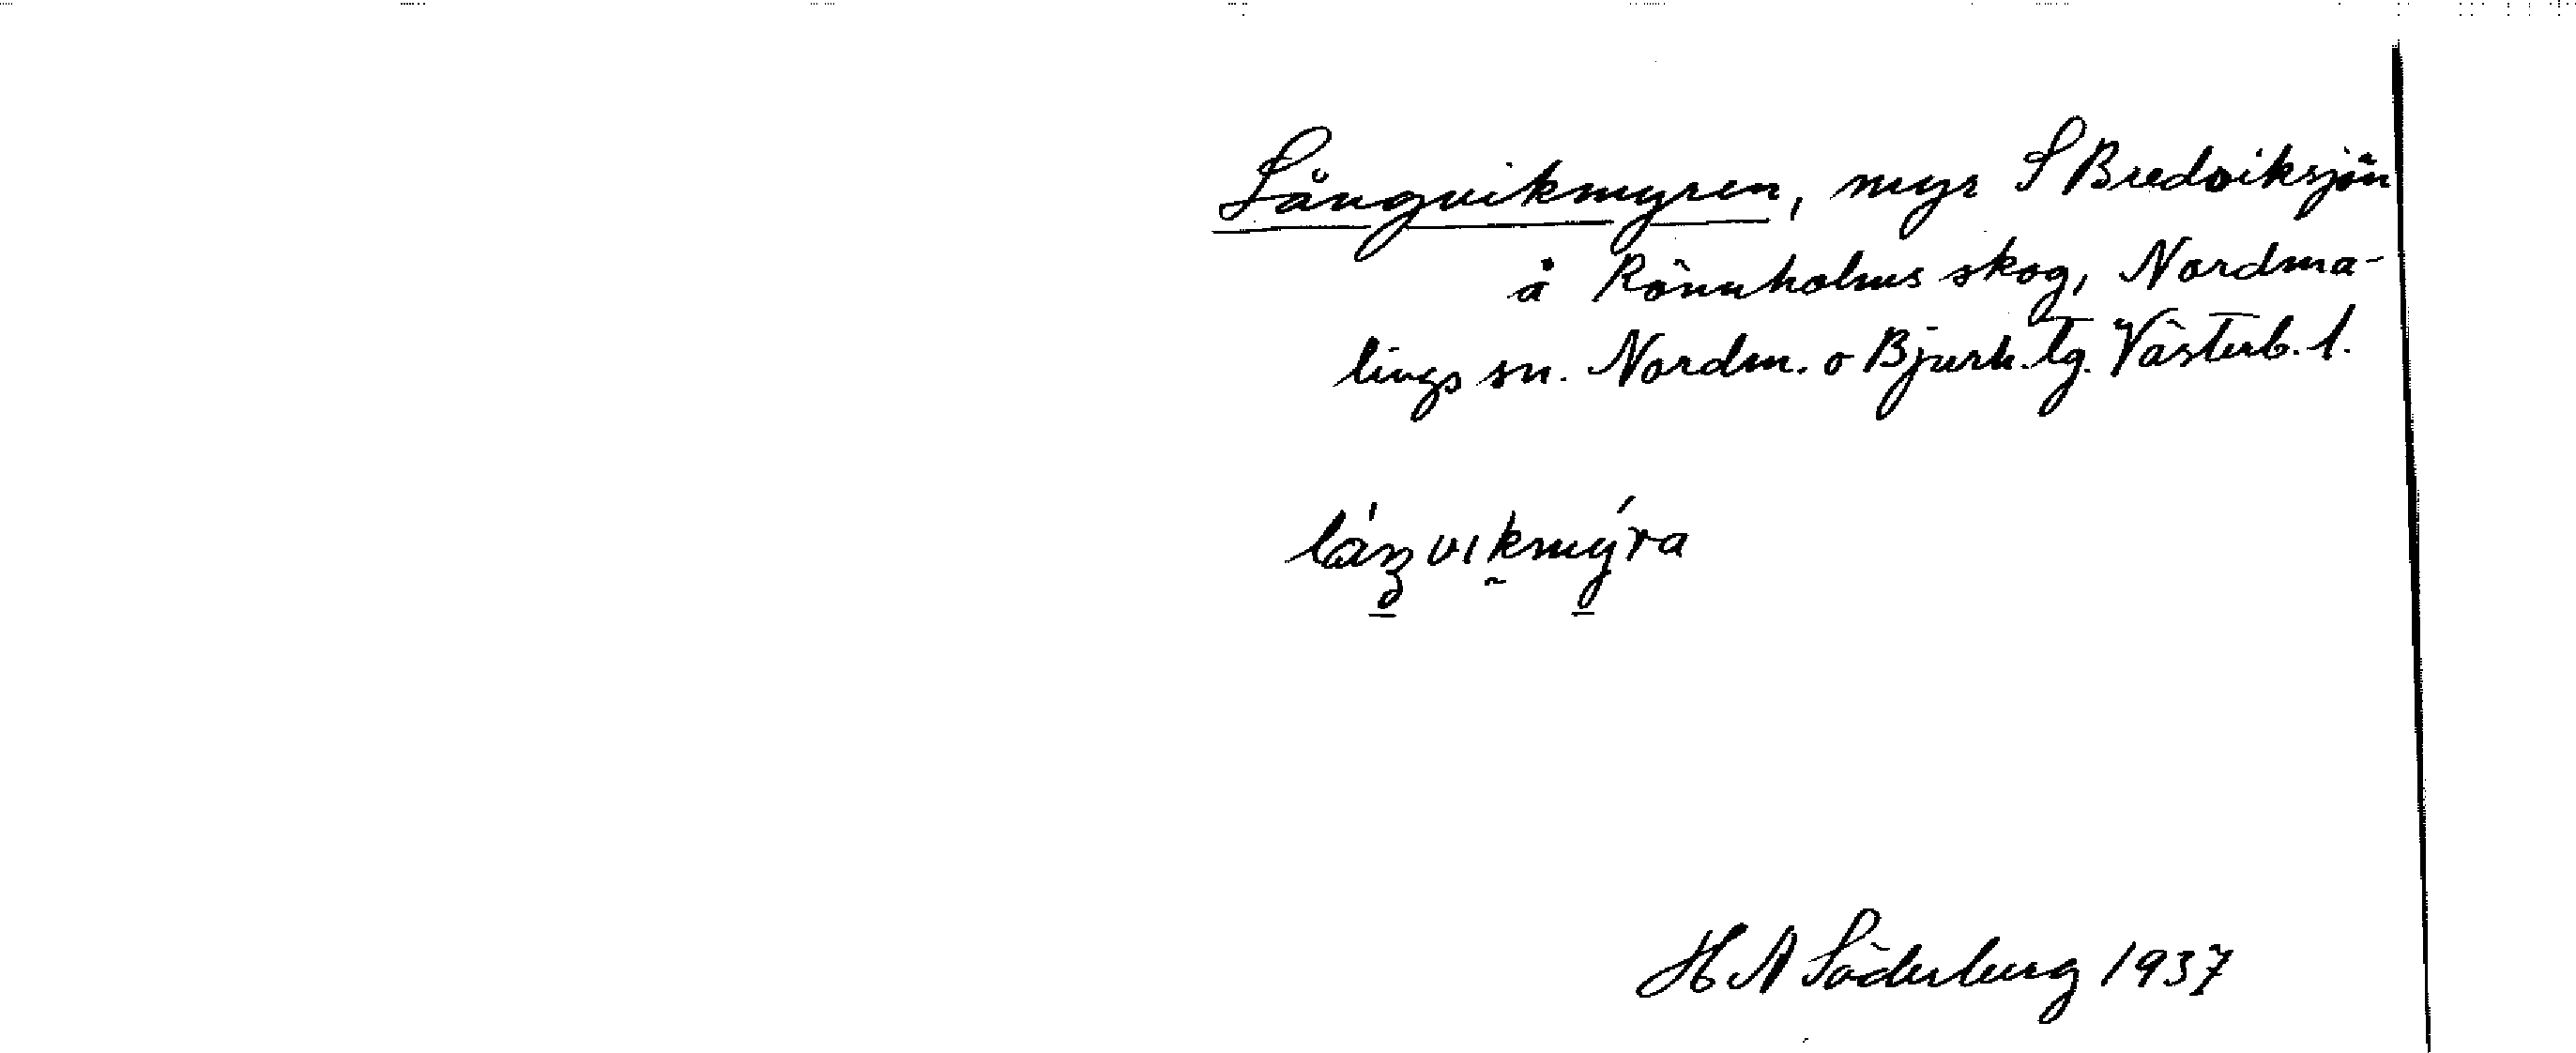 Långvikmyren, myr S Bredviksjön
å Rönnholms skog, Nordma-
lings sn. Nordm. o Bjurh. tg. Västerb. l.
láŋvıkmýra
H A Söderberg 1937